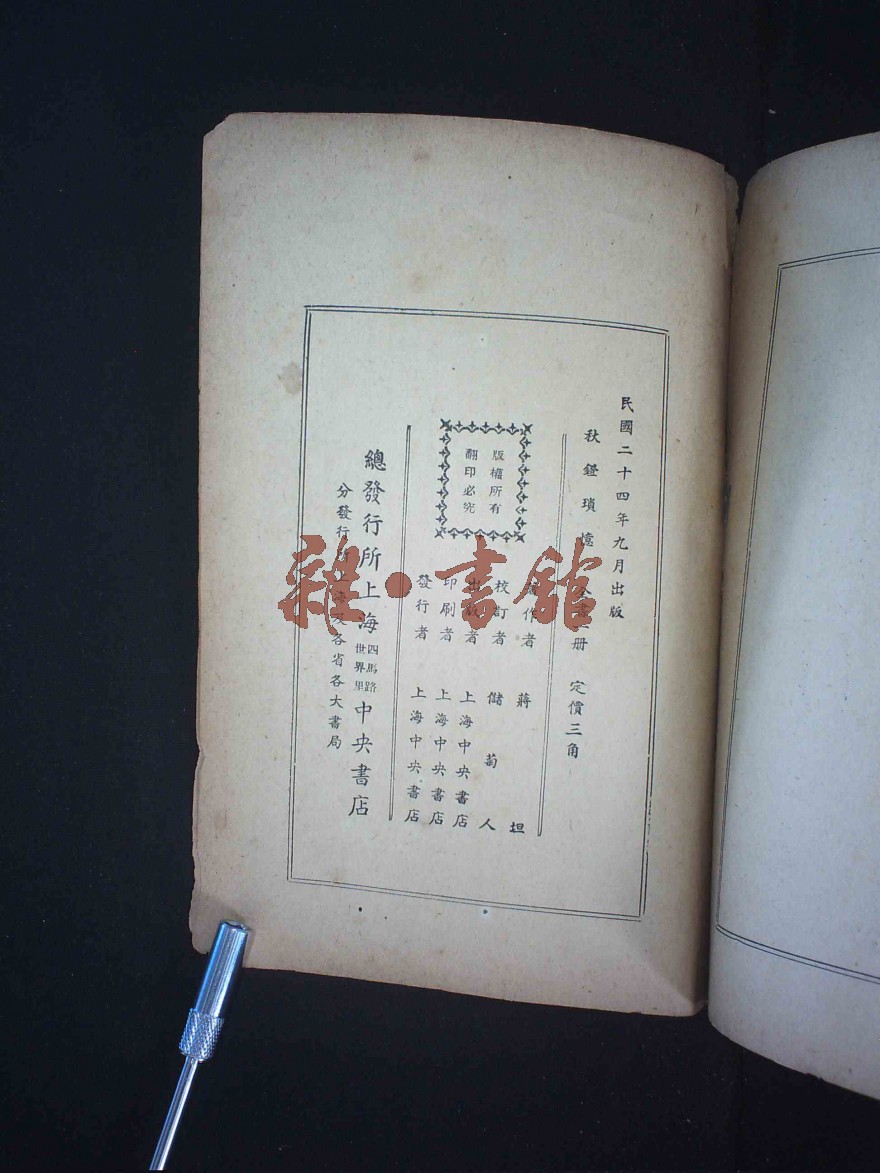 民國二十四年九月出版
秋鐙瑣憶 全書一册 定價三角
版權所有
翻印必究
著作者 蔣坦
校訂者 儲菊人
出版者 上海中央書店
印刷者 上海中央書店
發行者 上海中央書店
總發行所上海四馬路世界里中央書店
分發行所上海及各省各大書局
雜·書館